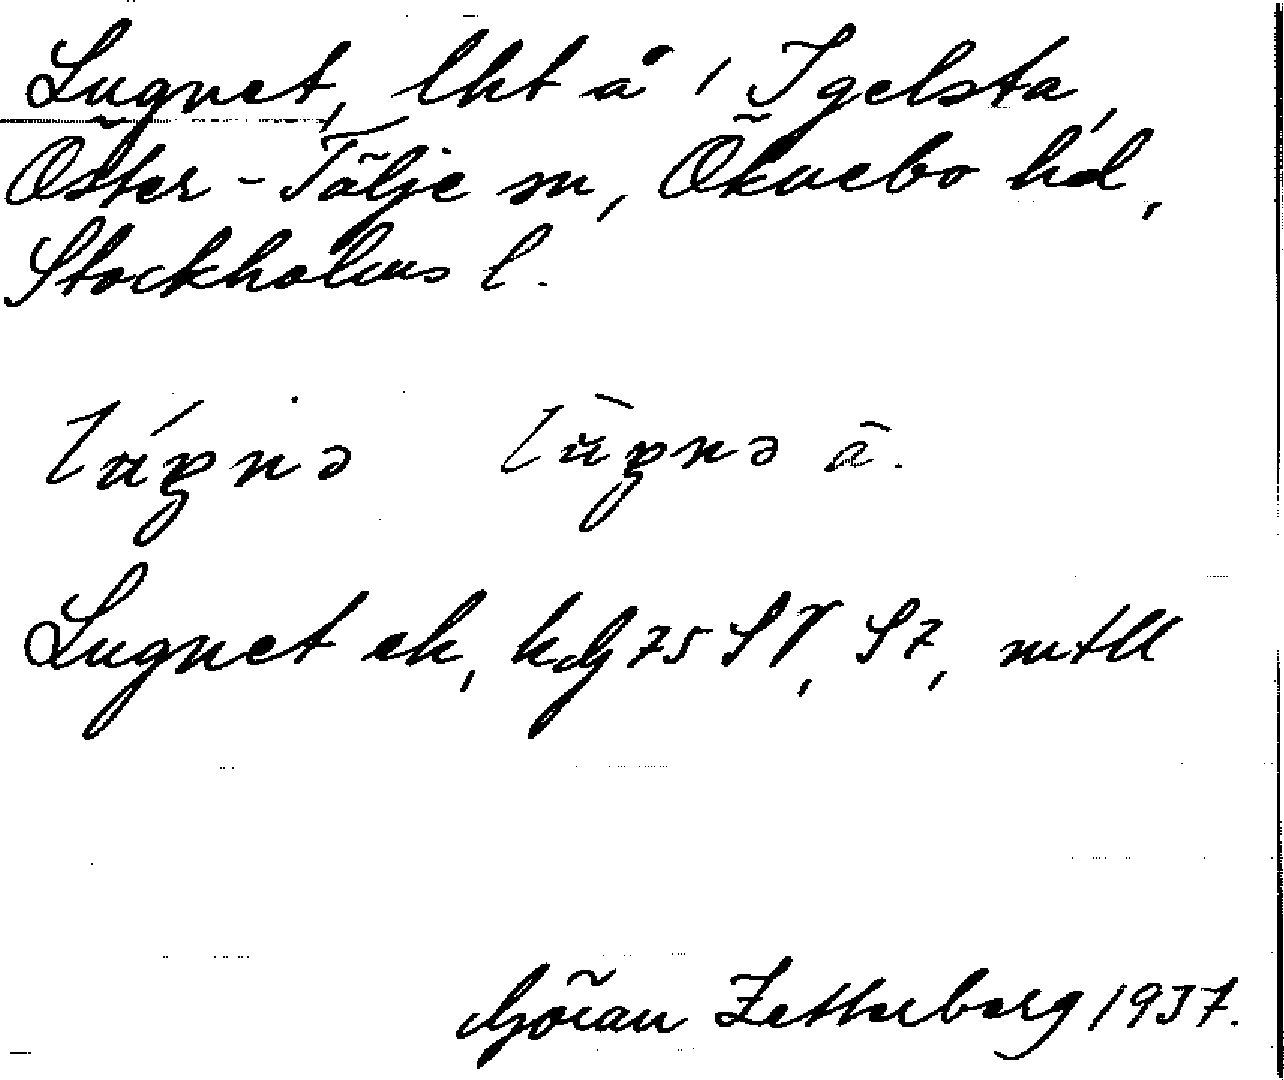 Lugnet, lht å ' Igelsta,
Öster-Tälje sn, Öknebo hd,
Stockholms l.
lúgnə lùgnə ä.
Lugnet ek, kbj 75 SV, S7, mtll
Göran Zetterborg 1937.